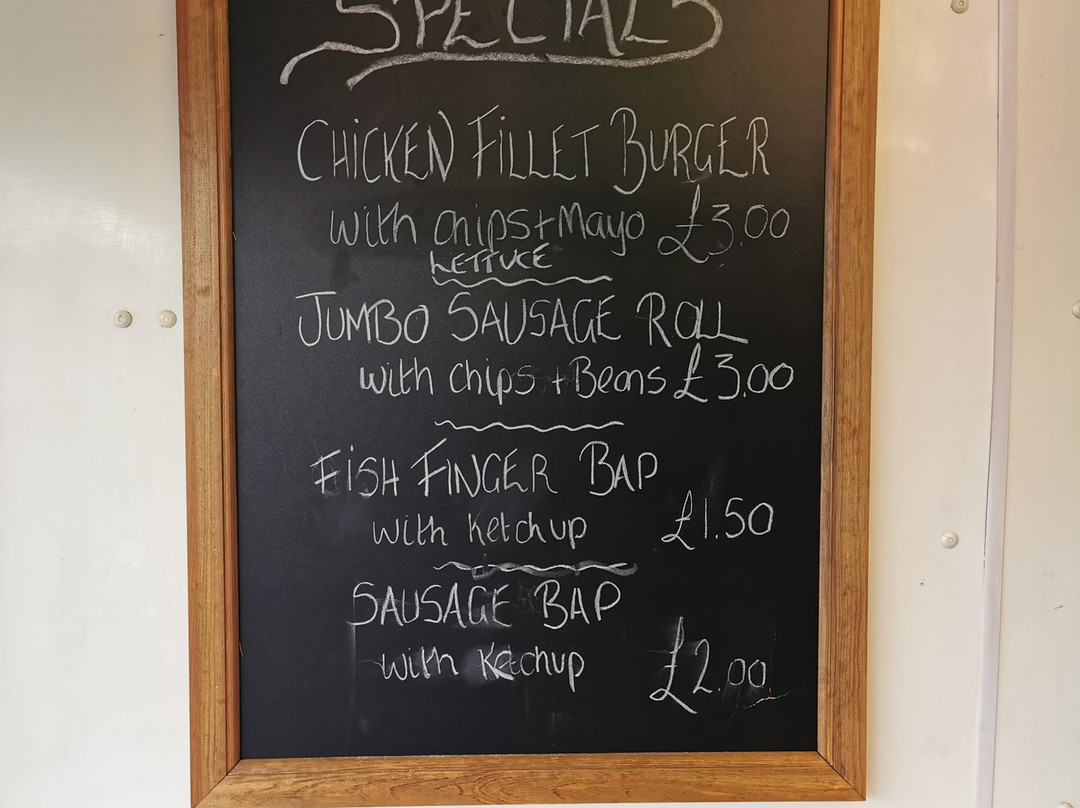 SPECIALS
CHICKEN FILLET BURGER
with chips + Mayo £3.00
LETTUCE
JUMBO SAUSAGE ROLL
with chips + Beans £3.00
FISH FINGER BAP
with Ketchup £1.50
SAUSAGE BAP
with Ketchup £2.00